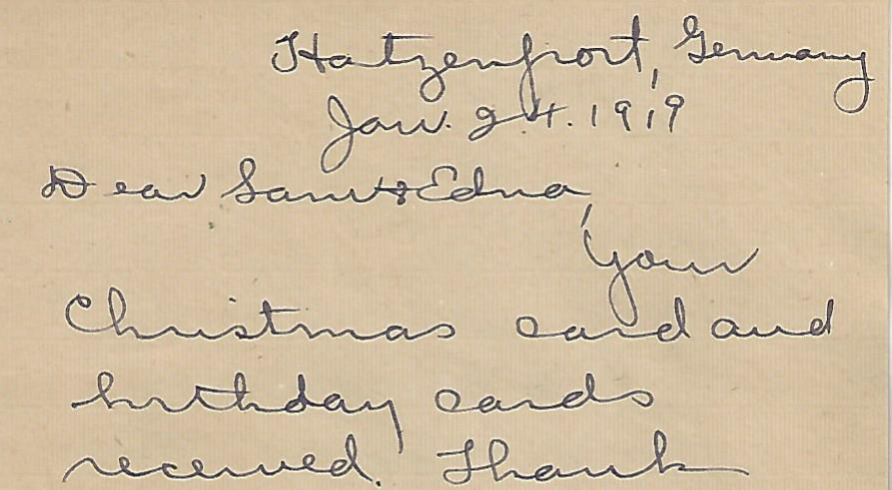 Hatzenport, Germany
Jan. 24. 1919
Dear Sam & Edna,
Your
Christmas card and
birthday cards
received. Thank